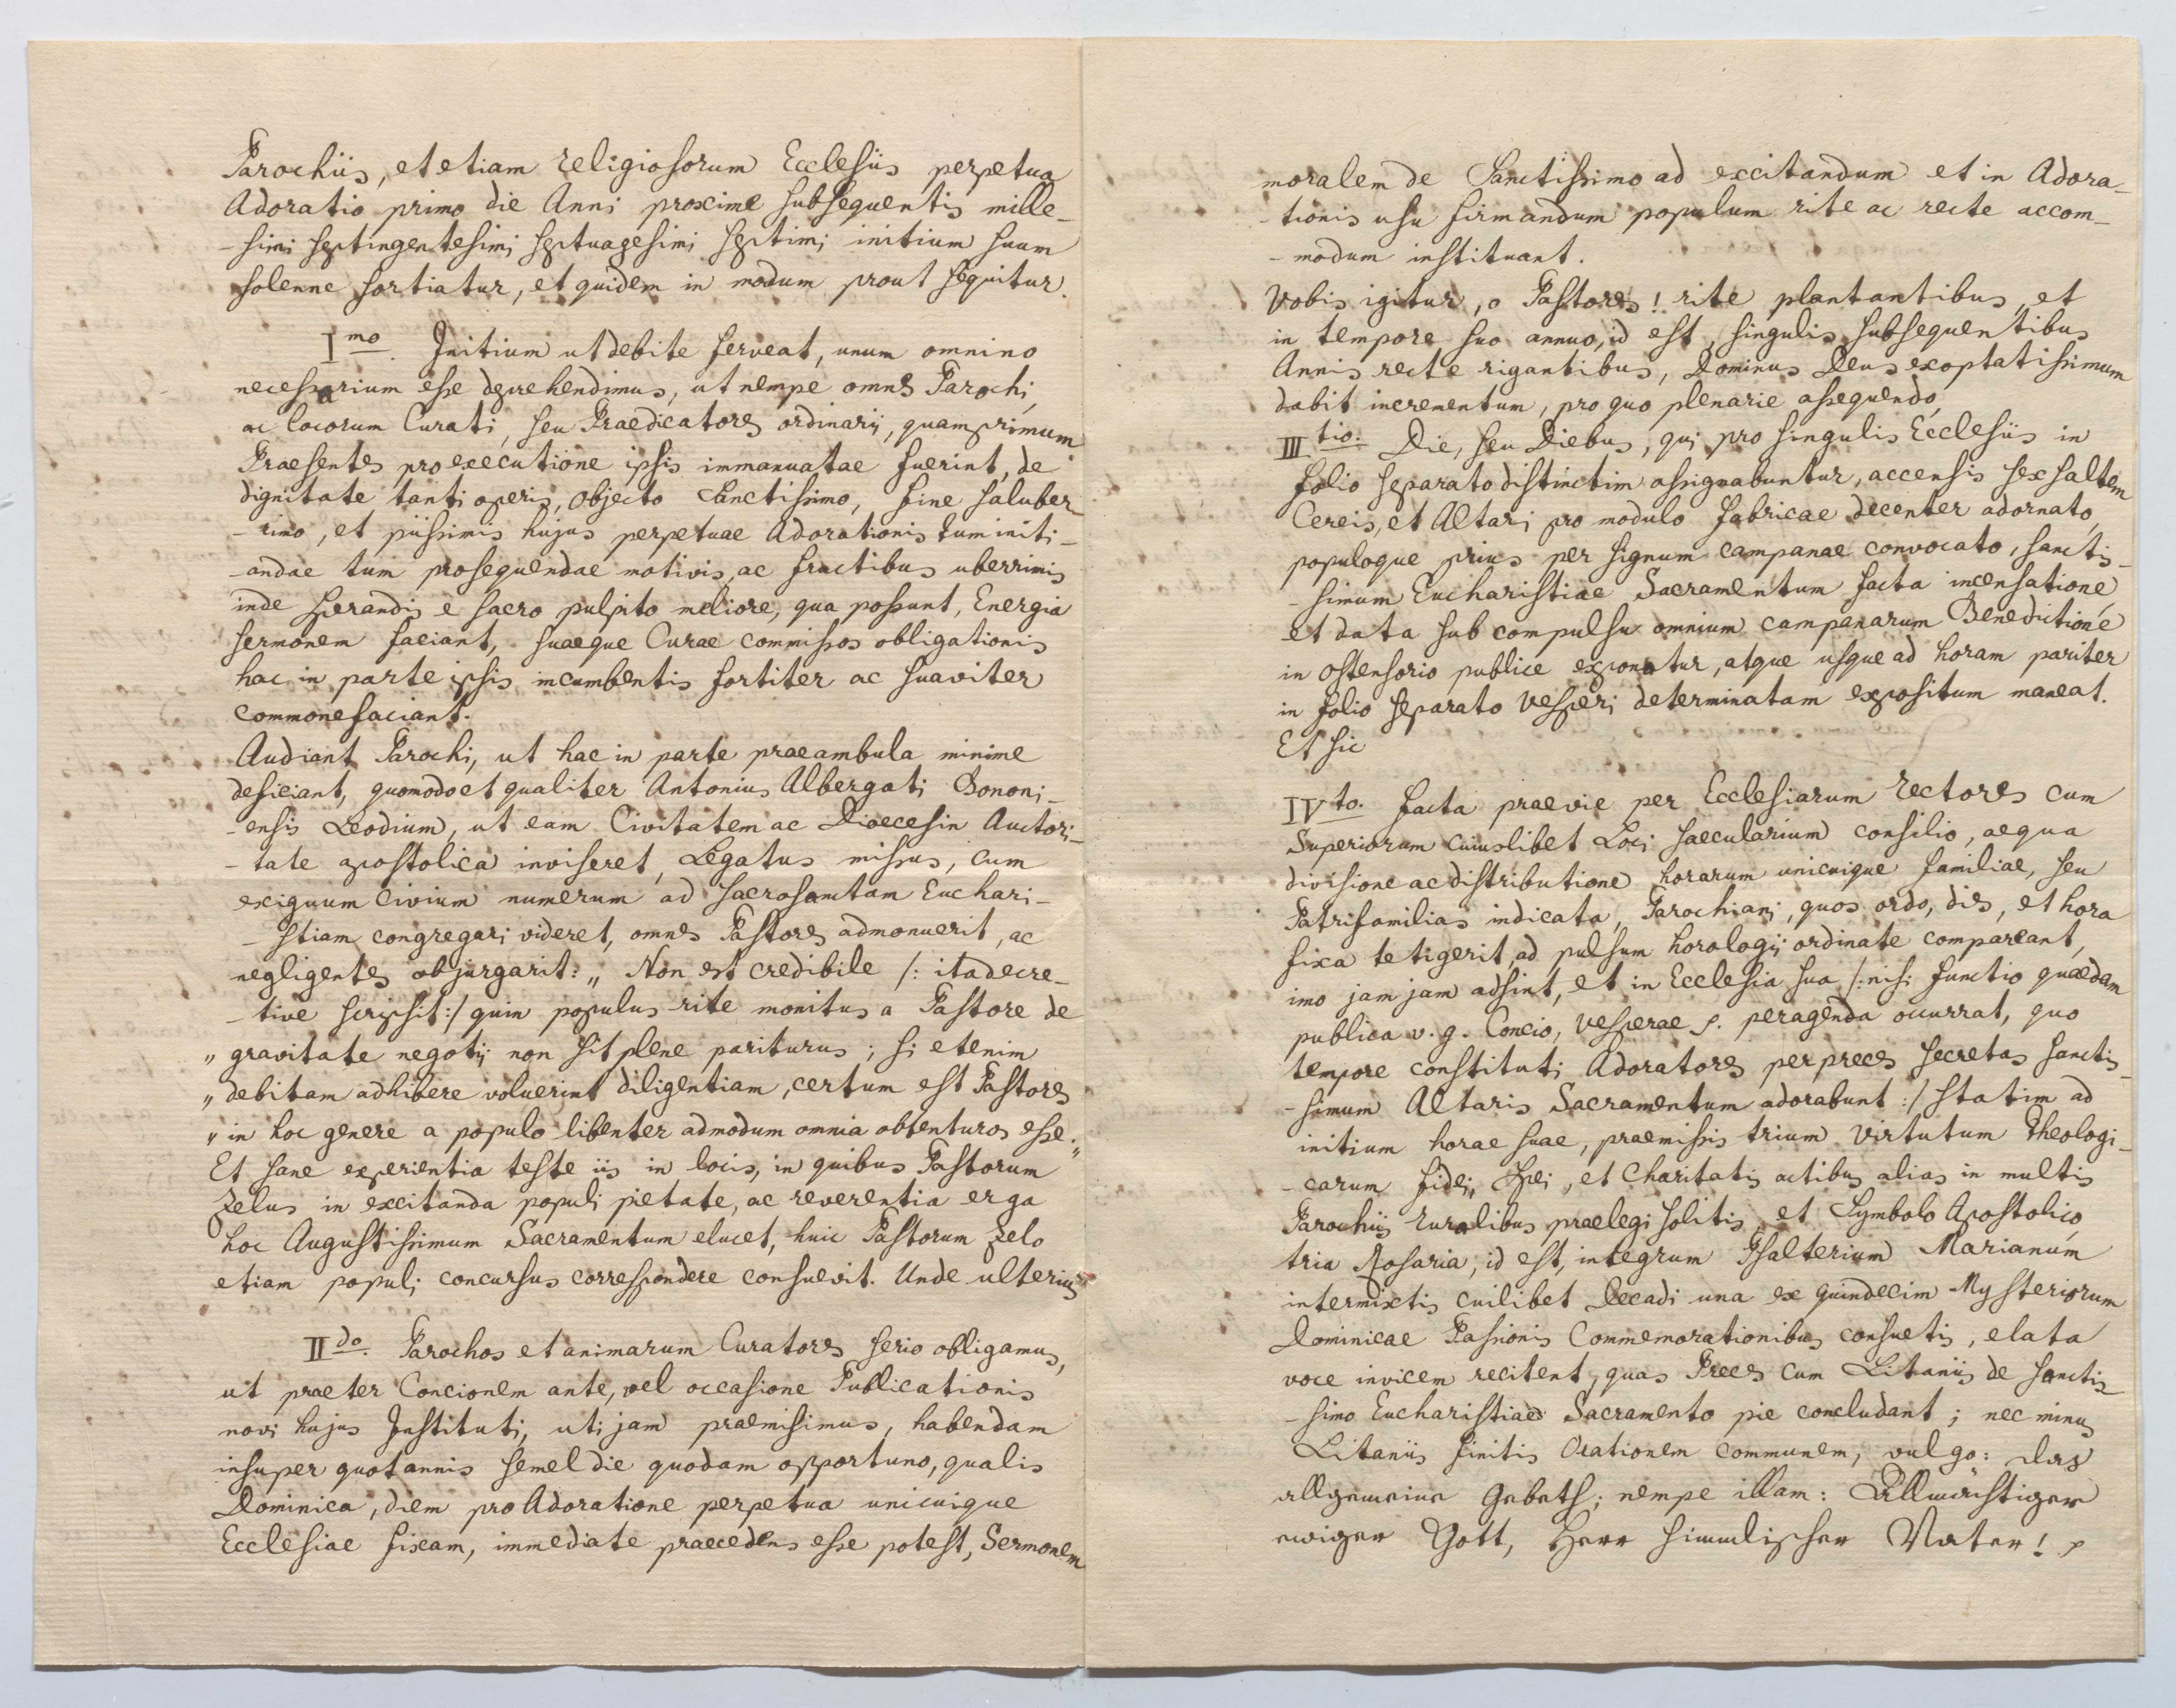 Parochiis, et etiam religiosorum Ecclesiis perpetua
Adoratio primo die Anni proxime subsequentis mille-
-simi septingentesimi septuagesimi septimi initium suum
solenne sortiatur, et quidem in modum prout sequitur.
Imo. Initium ut debite ferveat, unum omnino
necessarium esse deprehendimus, ut nempe omnes Parochi,
ac locorum Curati, seu Praedicatores ordinarii, quamprimum
Praesentes pro executione ipsis immanuatae fuerint, de
dignitate tanti operis, objecto Sanctissimo, fine saluber-
-rimo, et piissimis hujus perpetuae Adorationis tum initi-
-andae tum prosequendae motivis, ac fructibus uberrimis
inde sperandis e sacro pulpito meliore, qua possunt, Energia
sermonem faciant, suaeque Curae commissos obligationis
hac in parte ipsis incumbentis fortiter ac suaviter
commonefaciant.
Audiant Parochi, ut hac in parte praeambula minime
deficiant, quomodo et qualiter Antonius Albergati Bononi-
-ensis Leodium, ut eam Civitatem ac Dioecesin Auctori-
-tate apostolica inviseret, Legatus missus, cum
exiguum Civium numerum ad Sacrosanctam Euchari-
-stiam congregari videret, omnes Pastores admonuerit, ac
negligentes objurgarit: „ Non est credibile /: ita decre-
-tive scripsit :/ quin populus rite monitus a Pastore de
„ gravitate negotij non sit plene pariturus; si etenim
„ debitam adhibere voluerint diligentiam, certum est Pastores
„ in hoc genere a populo libenter admodum omnia obtenturos esse. „
Et sane experientia teste iis in locis, in quibus Pastorum
Zelus in excitanda populi pietate, ac reverentia erga
hoc Augustissimum Sacramentum elucet, huic Pastorum Zelo
etiam populi concursus correspondere consuevit. Unde ulterius
IIdo. Parochos et animarum Curatores serio obligamus,
ut praeter Concionem ante, vel occasione Publicationis
novi hujus Instituti, uti jam praemisimus, habendam
insuper quotannis semel die quodam opportuno, qualis
Dominica, diem pro Adoratione perpetua unicuique
Ecclesiae fixam, immediate praecedens esse potest, Sermonem
moralem de Sanctissimo ad excitandum et in Adora-
-tionis usu firmandum populum rite ac recte accom-
-modum instituant.
Vobis igitur, o Pastores! rite plantantibus, et
in tempore suo annuo, id est, singulis subsequentibus
Annis recte rigantibus, Dominus Deus exoptatissimum
dabit incrementum, pro quo plenarie assequendo,
IIItio. Die, seu Diebus, qui pro singulis Ecclesiis in
folio separato distinctim assignabuntur, accensis sex saltem
Cereis, et Altari pro modulo fabricae decenter adornato,
populoque prius per signum campanae convocato, sanctis-
-simum Eucharistiae Sacramentum facta incensatione
et data sub compulsu omnium campanarum Benedictione
in Ostensorio publice exponatur, atque usque ad horam pariter
in folio separato Vesperi determinatam expositum maneat.
Et sic
IVto. facta praevie per Ecclesiarum Rectores cum
Superiorum cuiuslibet Loci saecularium consilio, aequa
divisione ac distributione horarum unicuique familiae, seu
Patrifamilias indicata, Parochiani, quos ordo, dies, et hora
fixa tetigerit, ad pulsum horologij ordinate compareant,
imo jam jam adsint, et in Ecclesia sua /: nisi functio quaedam
publica v. g. Concio, Vesperae p. peragenda occurrat, quo
tempore constituti Adoratores per preces secretas sanctis-
-simum Altaris Sacramentum adorabunt :/ statim ad
initium horae suae, praemissis trium Virtutum Theologi-
-carum fidei, Spei, et Charitatis actibus alias in multis
Parochiis ruralibus praelegi solitis, et Symbolo Apostolico,
tria Rosaria, id est, integrum Psalterium Marianum
intermixtis cuilibet Decadi una ex quindecim Mysteriorum
Dominicae Passionis Commemorationibus consuetis, elata
voce invicem recitent, quas Preces cum Litaniis de sanctis-
-simo Eucharistiae Sacramento pie concludant; nec minus
Litaniis finitis Orationem communem, vulgo: das
allgemeine Gebeth; nempe illam: Allmächtiger
ewiger Gott, Herr himmlischer Vater! p